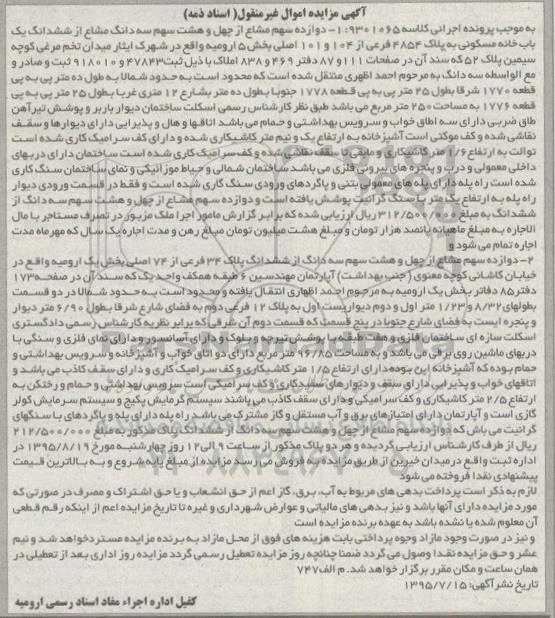 آگهی مزایده اموال غیرمنقول( اسناد ذمه)
به موجب پرونده اجرائی کلاسه ۹۳۰۱۰۶۵: ۱- دوازده سهم مشاع از چهل و هشت سهم سه دانگ مشاع از ششدانگ یک
باب خانه مسکونی به پلاک ۴۸۵۴ فرعی از ۱۰۴ و ۱۰۱ اصلی بخش ۵ ارومیه واقع در شهرک ایثار میدان تخم مرغی کوچه
سیمین پلاک ۵۲ که سند آن در صفحات ۱۱۱ و ۸۷ دفتر ۴۶۹ و ۸۳۸ املاک با ذیل ثبت ۴۷۸۴۳ و ۹۱۸۰۱۰ ثبت و صادر و
مع الواسطه سه دانگ به مرحوم احمد اظهری منتقل شده است که محدود است به حدود شمالا به طول ده متر پی به پی
قطعه ۱۷۷۰ شرقا بطول ۲۵ متر پی به پی قطعه ۱۷۷۸ جنوبا بطول ده متر بشارع ۱۲ متری غربا بطول ۲۵ متر پی به پی
قطعه ۱۷۷۶ به مساحت ۲۵۰ متر مربع می باشد طبق نظر کارشناس رسمی اسکلت ساختمان دیوار باربر و پوشش تیرآهن
طاق ضربی دارای سه اطاق خواب و سرویس بهداشتی و حمام می باشد اتاقها و هال و پذیرایی دارای دیوارها و سقف
نقاشی شده و کف موکتی است آشپزخانه به ارتفاع یک و نیم متر کاشیکاری شده و دارای کف سرامیک کاری شده است
توالت به ارتفاع ۱/۶ متر کاشیکاری و مابقی تا سقف نقاشی شده و کف سرامیک کاری شده است ساختمان دارای دربهای
داخلی معمولی و درب و پنجره های بیرونی فلزی می باشد ساختمان شمالی و حیاط موزائیکی و نمای ساختمان سنگ کاری
شده است راه پله دارای پله های معمولی بتنی و پاگردهای ورودی سنگ کاری شده است و فقط در قسمت ورودی دیوار
راه پله به ارتفاع یک متر با سنگ گرانیت پوشش یافته است و دوازده سهم مشاع از چهل و هشت سهم سه دانگ از
ششدانگ به مبلغ ۳۱۲/۵۰۰/۰۰۰ ریال ارزیابی شده که برابر گزارش مامور اجرا ملک مزبور در تصرف مستاجر با مال
الاجاره به مبلغ ماهیانه پانصد هزار تومان و مبلغ هشت میلیون تومان مبلغ رهن و مدت اجاره یک سال که مهرماه مدت
اجاره تمام می شود و
۲- دوازده سهم مشاع از چهل و هشت سهم سه دانگ از ششدانگ پلاک ۳۴ فرعی از ۷۴ اصلی بخش یک ارومیه واقع در
خیابان کاشانی کوچه معنوی ( جنب بهداشت) آپارتمان مهندسین ۶ طبقه همکف واحد یک که سند آن در صفحه ۱۷۳
دفتر ۸۵ دفاتر بخش یک ارومیه به مرحوم احمد اظهاری انتقال یافته و محدود است به حدود شمالا در دو قسمت
بطولهای ۸/۳۲ و ۱/۲۳ متر اول و دوم دیواریست اول به پلاک ۱۲ فرعی دوم به فضای شارع شرقا بطول ۶/۹۰ متر دیوار
و پنجره ایست به فضای شارع جنوبا در پنج قسمت که قسمت دوم آن شرقی که برابر نظریه کارشناس رسمی دادگستری
اسکلت سازه ای ساختمان فلزی و هفت طبقه با پوشش تیرچه و بلوک و دارای آسانسور و دارای نمای فلزی و سنگی با
دربهای ماشین روی برقی می باشد و به مساحت ۹۶/۸۵ متر مربع دارای دو اتاق خواب و آشپزخانه و سرویس بهداشتی و
حمام بوده که آشپزخانه این بوده دارای ارتفاع ۱/۵ متر کاشیکاری و کف سرامیک کاری و دارای سقف کاذب می باشد و
اتاقهای خواب و پذیرایی دارای سقف و دیوارهای سفیدکاری و کف سرامیکی است سرویس بهداشتی و حمام و رختکن به
ارتفاع ۲/۵ متر کاشیکاری و کف سرامیکی و دارای سقف کاذب می باشند سیستم گرمایش پکیج و سیستم سرمایش کولر
گازی است و آپارتمان دارای امتیازهای برق و آب مستقل و گاز مشترک می باشد راه پله دارای پله و پاگردهای با سنگهای
گرانیت می باش که دوازده سهم مشاع از چهل و هشت سهم سه دانگ از ششدانگ ملک مذکور به مبلغ ۲۱۲/۵۰۰/۰۰۰
ریال از طرف کارشناس ارزیابی گردیده و هر دو پلاک مذکور از ساعت ۹ الی ۱۲ روز چهارشنبه مورخ ۱۳۹۵/۸/۱۹ در
اداره ثبت واقع در میدان خیبرین از طریق مزایده به فروش می رسد مزایده از مبلغ پایه شروع و به بالاترین قیمت
پیشنهادی نقدا فروخته می شود
لازم به ذکر است پرداخت بدهی های مربوط به آب، برق، گاز اعم از حق انشعاب و یا حق اشتراک و مصرف در صورتی که
مورد مزایده دارای آنها باشد و نیز بدهی های مالیاتی و عوارض شهرداری و غیره تا تاریخ مزایده اعم از اینکه رقم قطعی
آن معلوم شده یا نشده باشد به عهده برنده مزایده است
و نیز در صورت وجود مازاد وجوه پرداختی بابت هزینه های فوق از محل مازاد به برنده مزایده مسترد خواهد شد و نیم
عشر و حق مزایده نقدا وصول می گردد ضمنا چنانچه روز مزایده تعطیل رسمی گردد مزایده روز اداری بعد از تعطیلی در
همان ساعت و مکان مقرر برگزار خواهد شد. م الف ۷۴۷
تاریخ نشر آگهی: ۱۳۹۵/۷/۱۵
کفیل اداره اجراء مفاد اسناد رسمی ارومیه